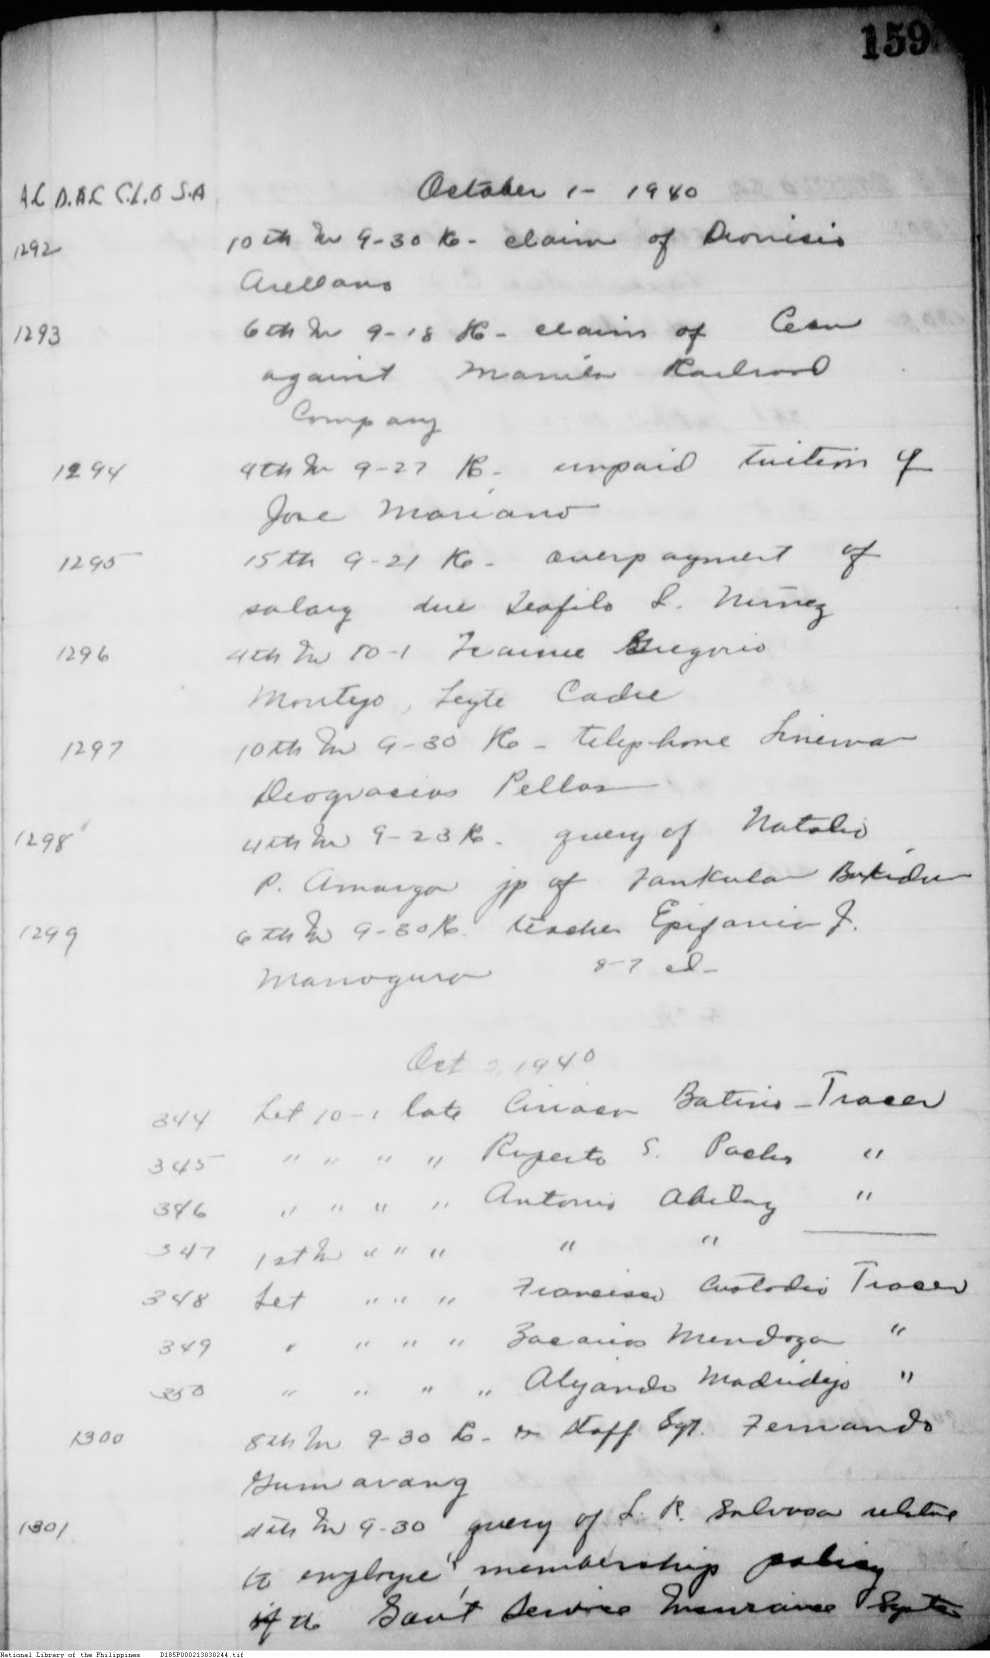 159
A.C D.A.C C.L.O S.A
October 1 - 1940
1292 10th In 9-30 Re - claim of Dionisio
Arellano
1293 6th In 9-18 Re - claim of
against Manila Railroad
Company
1294 9th In 9-27 Re - unpaid tuition of
Jose Mariano
1295 15th 9-21 Re - overpayment of
salary due Teofilo S. Nuñez
1296 4th In 10-1 Trainee Gregorio
Montejo, Leyte Cadre
1297 10th In 9-30 Re - telephone Lineman
Deogracias Pellas
1298 4th In 9-23 Re - query of Natalio
P. Amarga jp of Tankulan Bukidn
1299 6th In 9-30 Re. teacher Epifania J.
8-7 el-
Oct 2, 1940
344 Let 10-1 late Batino - Tracer
345 " " " " Ruperto S. "
346 " " " " Antonio Abilay "
347 1st In " " " " "
348 Let " " " Francisco Custodio Tracer
349 " " " " Zacarias Mendoza "
350 " " " " Alejandro Madridejo "
1300 8th In 9-30 Re - Staff Sgt. Fernando
Gumarang
1301 4th In 9-30 query of L. R. Salvosa relative
to employe's membership policy
of the Gov't Service Insurance System
National Library of the Philippines D185P000213030244.tif